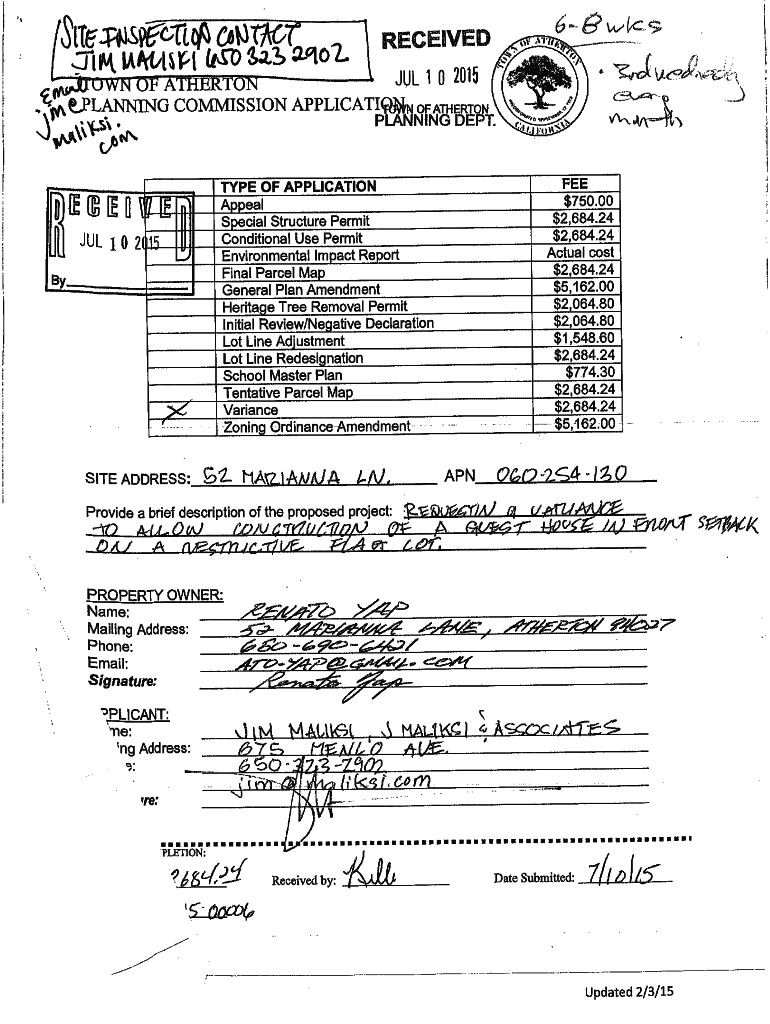 SITE INSPECTION CONTACT
JIM MALISKI 650 323 2902
RECEIVED
JUL 10 2015
TOWN OF ATHERTON
PLANNING DEPT.
TOWN OF ATHERTON
CALIFORNIA
6-8 wks
• 3rd wednesday
every
month
Email
jim@
maliksi.
com
TOWN OF ATHERTON
PLANNING COMMISSION APPLICATION
RECEIVED
JUL 10 2015
By
TYPE OF APPLICATION FEE
Appeal $750.00
Special Structure Permit $2,684.24
Conditional Use Permit $2,684.24
Environmental Impact Report Actual cost
Final Parcel Map $2,684.24
General Plan Amendment $5,162.00
Heritage Tree Removal Permit $2,064.80
Initial Review/Negative Declaration $2,064.80
Lot Line Adjustment $1,548.60
Lot Line Redesignation $2,684.24
School Master Plan $774.30
Tentative Parcel Map $2,684.24
X Variance $2,684.24
Zoning Ordinance Amendment $5,162.00
SITE ADDRESS: 52 MARIANNA LN. APN 060-254-130
Provide a brief description of the proposed project: REQUESTIN a VARIANCE
TO ALLOW CONCTRUCTION OF A GUEST HOUSE IN FRONT SETBACK
ON A RESTRICTIVE FLAG LOT.
PROPERTY OWNER:
Name: RENATO YAP
Mailing Address: 52 MARIANNA LANE, ATHERTON 94027
Phone: 650-690-6421
Email: ATO-YAP@GMAIL.COM
Signature: Renato Yap
PPLICANT:
me: JIM MALIKSI, J MALIKSI & ASSOCIATES
ng Address: 675 MENLO AVE.
e: 650-323-2902
jim@maliksi.com
re:
PLETION:
2684.24 Received by: Date Submitted: 7/10/15
15-00006
Updated 2/3/15